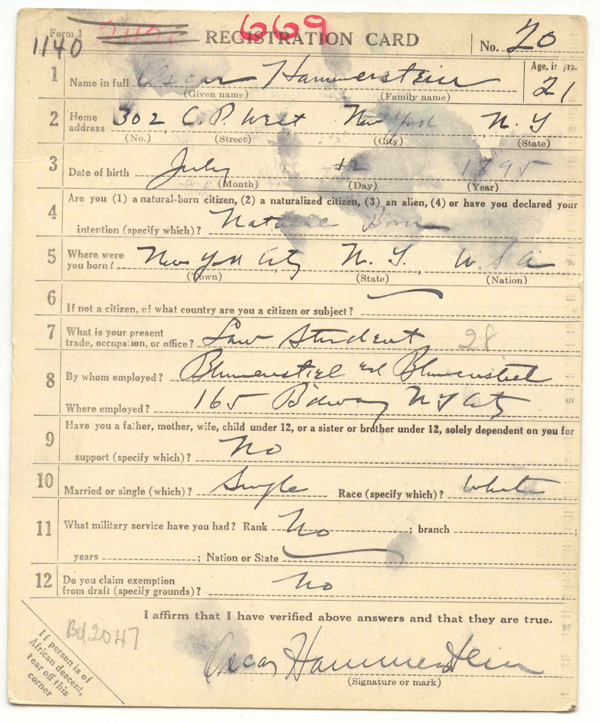 669
Form 1 REGISTRATION CARD No. 20
1140
1 Name in full Oscar Hammerstein Age, in yrs. 21
(Given name) (Family name)
2 Home address 302 C. P. West New York N. Y
(No.) (Street) (City) (State)
3 Date of birth July 12 1895
(Month) (Day) (Year)
Are you (1) a natural-born citizen, (2) a naturalized citizen, (3) an alien, (4) or have you declared your
4 intention (specify which)? Natural Born
5 Where were you born? New York City N. Y. U S A
(Town) (State) (Nation)
6 If not a citizen, of what country are you a citizen or subject?
7 What is your present trade, occupation, or office? Law Student 28
8 By whom employed? Blumenstiel and Blumenstiel
Where employed? 165 B'dway N Y City
9 Have you a father, mother, wife, child under 12, or a sister or brother under 12, solely dependent on you for
support (specify which)? No
10 Married or single (which)? Single Race (specify which)? White
11 What military service have you had? Rank No ; branch
years ; Nation or State
12 Do you claim exemption from draft (specify grounds)? No
I affirm that I have verified above answers and that they are true.
Bd2047
If person is of
African descent,
tear off this
corner
Oscar Hammerstein
(Signature or mark)